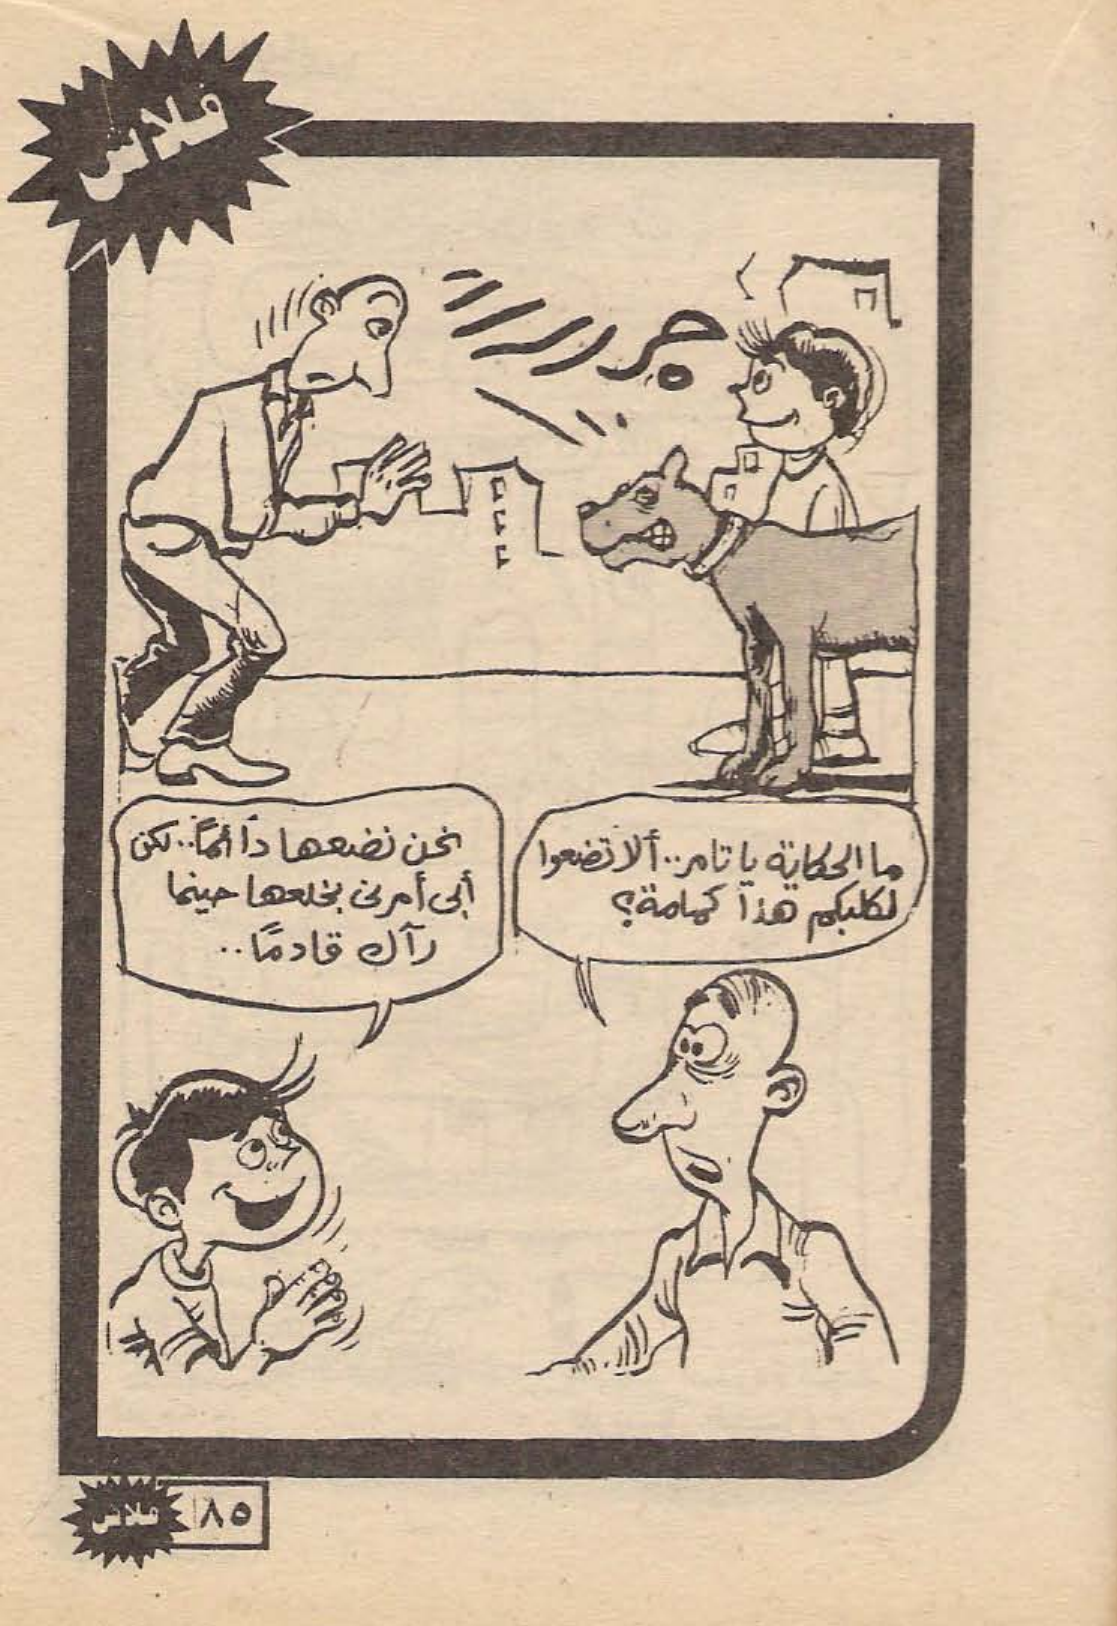 فلاش
جررررر
ما الحكاية يا تامر.. ألا تضعوا
لكلبكم هذا كمامة؟
نحن نضعها دائمًا.. لكن
أبى أمرنى بخلعها حينما
رآك قادمًا..
فلاش
٨٥